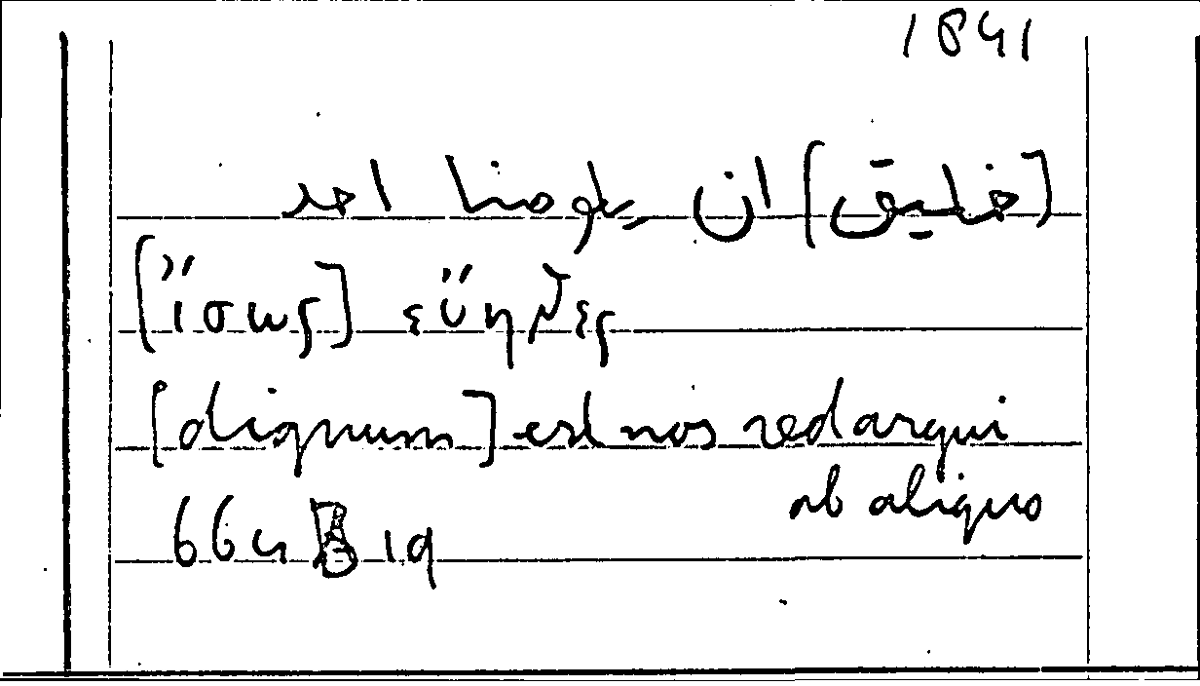 1841
[خليق] ان يلومنا احد
[ἴσως] εὔηθες
[dignum] est nos redarqui
ab aliquo
664 B 19